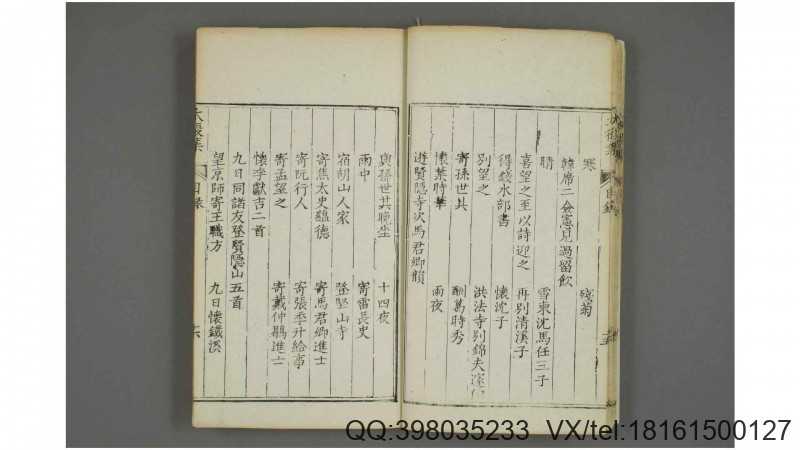 寒　殘菊
韓席二僉憲見過留飲
晴　雪柬沈馬任三子
喜望之至以詩迎之　再別清溪子
得錢水部書　懷沈子
別望之　洪法寺別錦夫
寄孫世其　酬葛時秀
懷葉時華　雨夜
遊賢隱寺次馬君卿韻
與孫世其晚坐　十四夜
雨中　寄雷長史
宿胡山人家　登堅山寺
寄焦太史蘊德　寄馬君卿進士
寄阮行人　寄張季升給事
寄孟望之　寄戴仲鶡進士
懷李獻吉二首
九日同諸友登賢隱山五首
望京師寄王職方　九日懷鐵溪
目錄
QQ:398035233 VX/tel:18161500127